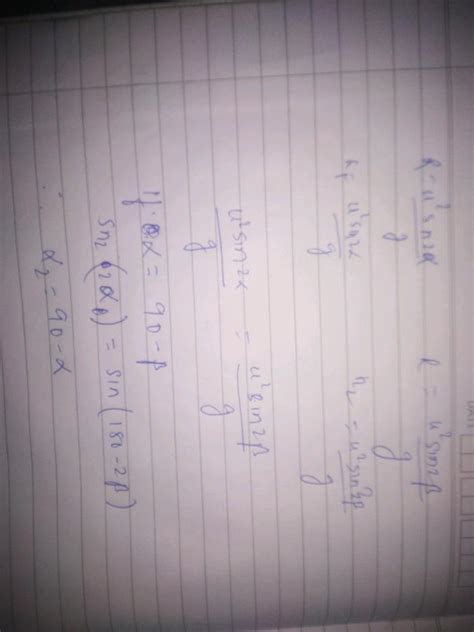 R = u² sin 2α / g    R = u² sin 2β / g
R₁ = u² sin 2α / g    = u² sin 2β / g
u² sin 2α / g = u² sin 2β / g
If α = 90 - β
(2α) = sin (180 - 2β)
∴ α₂ = 90 - α